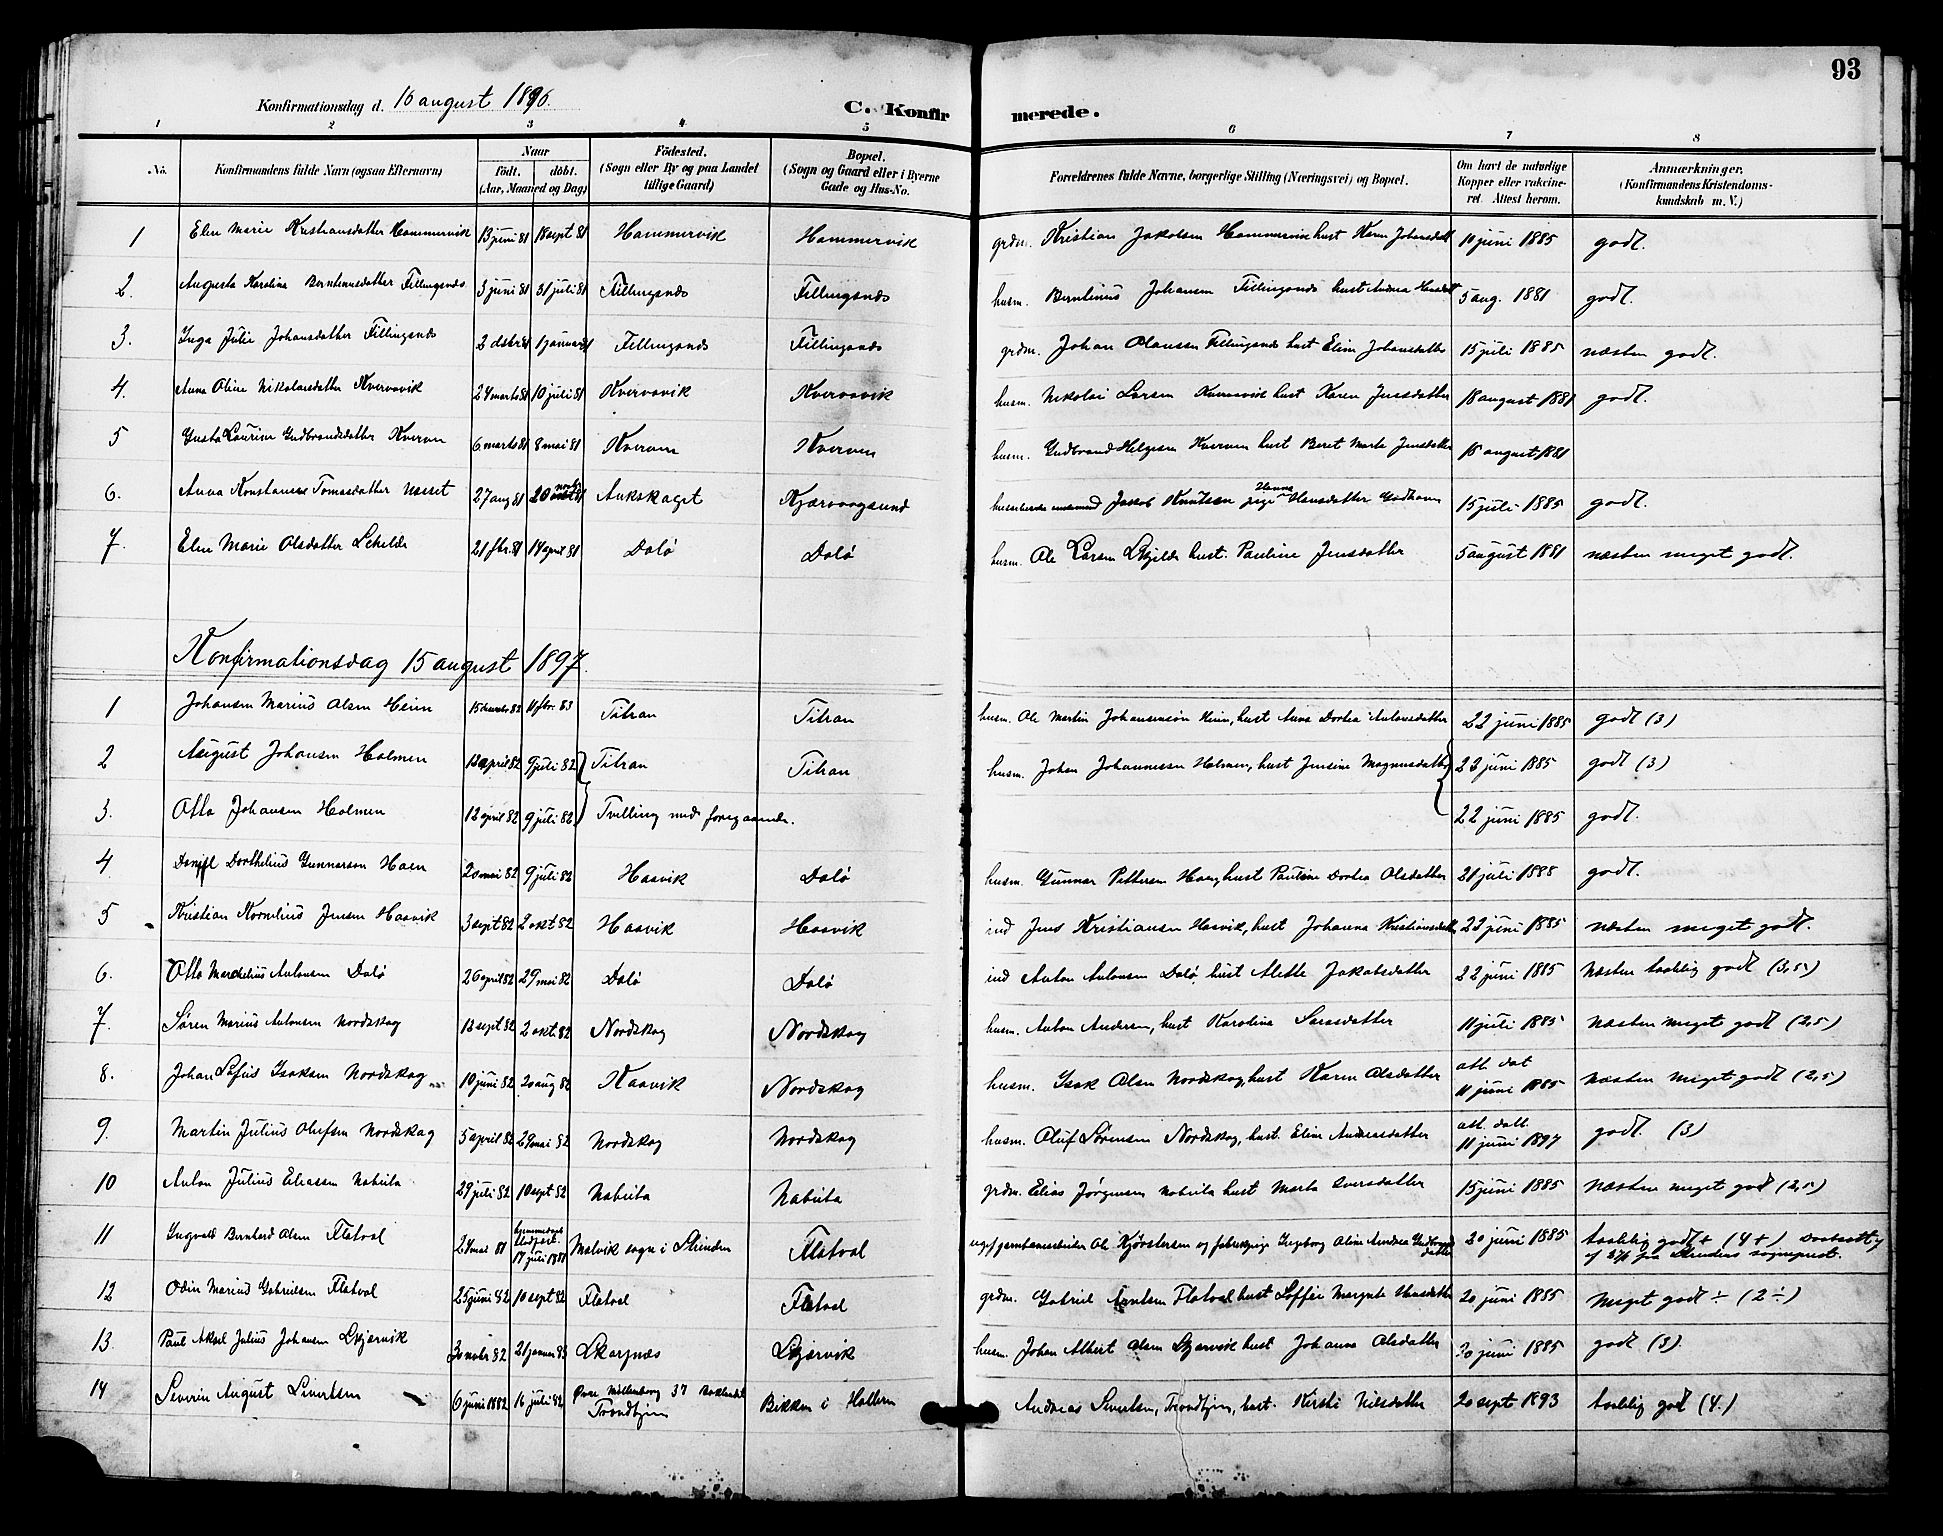 93
Konfirmationsdag d. 16 august 1896.
C. Konfirmerede.
1 2 3 4 5 6 7 8
No. Konfirmandens fulde Navn (ogsaa Efternavn) Naar født. døbt. (Aar, Maaned og Dag) Fødested. (Sogn eller By og paa Landet tillige Gaard) Bopæl. (Sogn og Gaard eller i Byerne Gade og Hus-No. Forældrenes fulde Navne, borgerlige Stilling (Næringsvei) og Bopæl. Om havt de naturlige Kopper eller vakcineret. Attest herom. Anmærkninger. (Konfirmandens Kristendomskundskab m. V.)
1 Elen Marie Kristiansdatter Hammervik 13 juni 81 18 sept 81 Hammervik Hammervik grdm. Kristian Jakobsen Hammervik hust Karen Johansdatt 10 juni 1885 godt.
2. Augusta Karolina Berntinusdatter Fillingsnes 3 juni 81 31 juli 81 Fillingsnes Fillingsnes husm. Berntinus Johansen Fillingsnes hust Andrea Hansdatt 5 aug. 1881 godt.
3. Inga Julie Johansdatter Fillingsnes 2 1 januar Fillingsnes Fillingsnes grdm. Johan Olaussen Fillingsnes hust Eline Johansdatter 15 juli 1885 næsten godt.
4. Anna Oline Nikolaisdatter Kvervavik 24 marts 81 10 juli 81 Kvervavik Kvervavik husm. Nikolai Larsen Kvervavik hust Karen Jensdatter 18 august 1881 godt.
5 Gusta Laurine Gudbrandsdatter Kverven 6 marts 81 8 mai 81 Kverven Kverven husm. Gudbrand Helgesen Kverven hust Beret Marta Jensdatter 18 august 1881
6. Anna Konstanse Tomasdatter Uksset 27 aug 81 20 novbr 81 Aukskaget Kjærvaagsund Jakob Knutsen pige Hanna Hansdatter Godhavn 15 juli 1885 godt.
7. Elen Marie Olsdatter Skilde 21 fbr. 81 14 april 81 Dalø Dalø husm. Ole Larsen Skjelde hust. Pauline Jensdatter 5 august 1881 næsten meget godt.
Konfirmationsdag 15 august 1897.
1 Johansen Marius Olsen Heim 15 82 11 fbr. 83 Titran Titran husm. Ole Martin Johannesen Heim, hust Anna Dortea Antonsdatter 22 juni 1885 godt (3)
2 August Johansen Holmen 12 april 82 9 juli 82 Titran Titran husm. Johan Johannessen Holmen, hust Jensine Magnusdatter 22 juni 1885 godt (3)
3. Otto Johansen Holmen 12 april 82 9 juli 82 Tvilling med foregaaende. 22 juni 1885 godt.
4 Daniel Dorthelius Gunnarsen Haen 20 mai 82 9 juli 82 Haavik Dalø husm. Gunnar Pettersen Haen, hust Pauline Dortea Olsdatter 21 juli 1885 godt.
5 Kristian Kornelius Jensen Haavik 3 sept 82 2 okt 82 Haavik Haavik ind Jens Kristiansen Haavik, hust Johanna Kristiansdatt 22 juni 1885 næsten meget godt.
6. Otto Marchelius Antonsen Dalø 26 april 82 29 mai 82 Dalø Dalø ind Anton Antonsen Dalø hust Alette Jakobsdatter 22 juni 1885 næsten taalelig godt (3,5)
7. Søren Marius Antonsen Nordskag 13 sept 82 2 okt. 82 Nordskag Nordskag husm. Anton Andersen, hust Karolina Larsdatter 11 juli 1885 næsten meget godt (2,5)
8. Johan Sefus Isaksen Nordskag 10 juni 82 20 aug 82 Kaavik Nordskag husm. Isak Olsen Nordskag, hust Karen Olsdatter att. dat 11 juni 1885 næsten meget godt (2,5)
9. Martin Julius Olufsen Nordskag 5 april 82 29 mai 82 Nordskag Nordskag husm. Oluf Sørensen Nordskag, hust. Eline Andreasdatter att. datt 11 juni 1897 godt. (3)
10 Anton Julius Eliassen Nabeita 29 juli 82 10 sept 82 Nabeita Nabeita grdm. Elias Jørgensen Nabeita hust Marta Iversdatter 15 juni 1885 næsten meget godt (2,5)
11 Ingvald Bernhard Olsen Flatval 24 mai 81 hjemmedøbt 17 juli 1881 Malvik sogn i Strinden Flatval ugift Ole Kjørstersen og Ingeborg Oline Andrea Gudbrandsdatter 20 juni 1885 taalelig godt + (4+) af fra Strindens sogneprest.
12 Odin Marius Gabrielsen Flatval 25 juni 82 10 sept 82 Flatval Flatval grdm. Gabriel Arntsen Flatval hust Soffie Margrete Hansdatter 20 juni 1885 meget godt ÷ (2 ÷)
13. Paul Aksel Julius Johansen Skjærvik 30 nobr 82 21 januar 83 Skarpnæs Skjærvik husm. Johan Albert Olsen Skjærvik hust Johanna Olsdatter 20 juni 1885 godt (3).
14 Severin August Sivertsen 6 juni 1882 16 juli 82 Øvre Møllenberg 37 Baklandet Trondhjem Bekken i Haltern Andreas Sivertsen, Trondhjem, hust. Kirsti Nilsdatter 20 sept 1893 taalelig godt (4.)